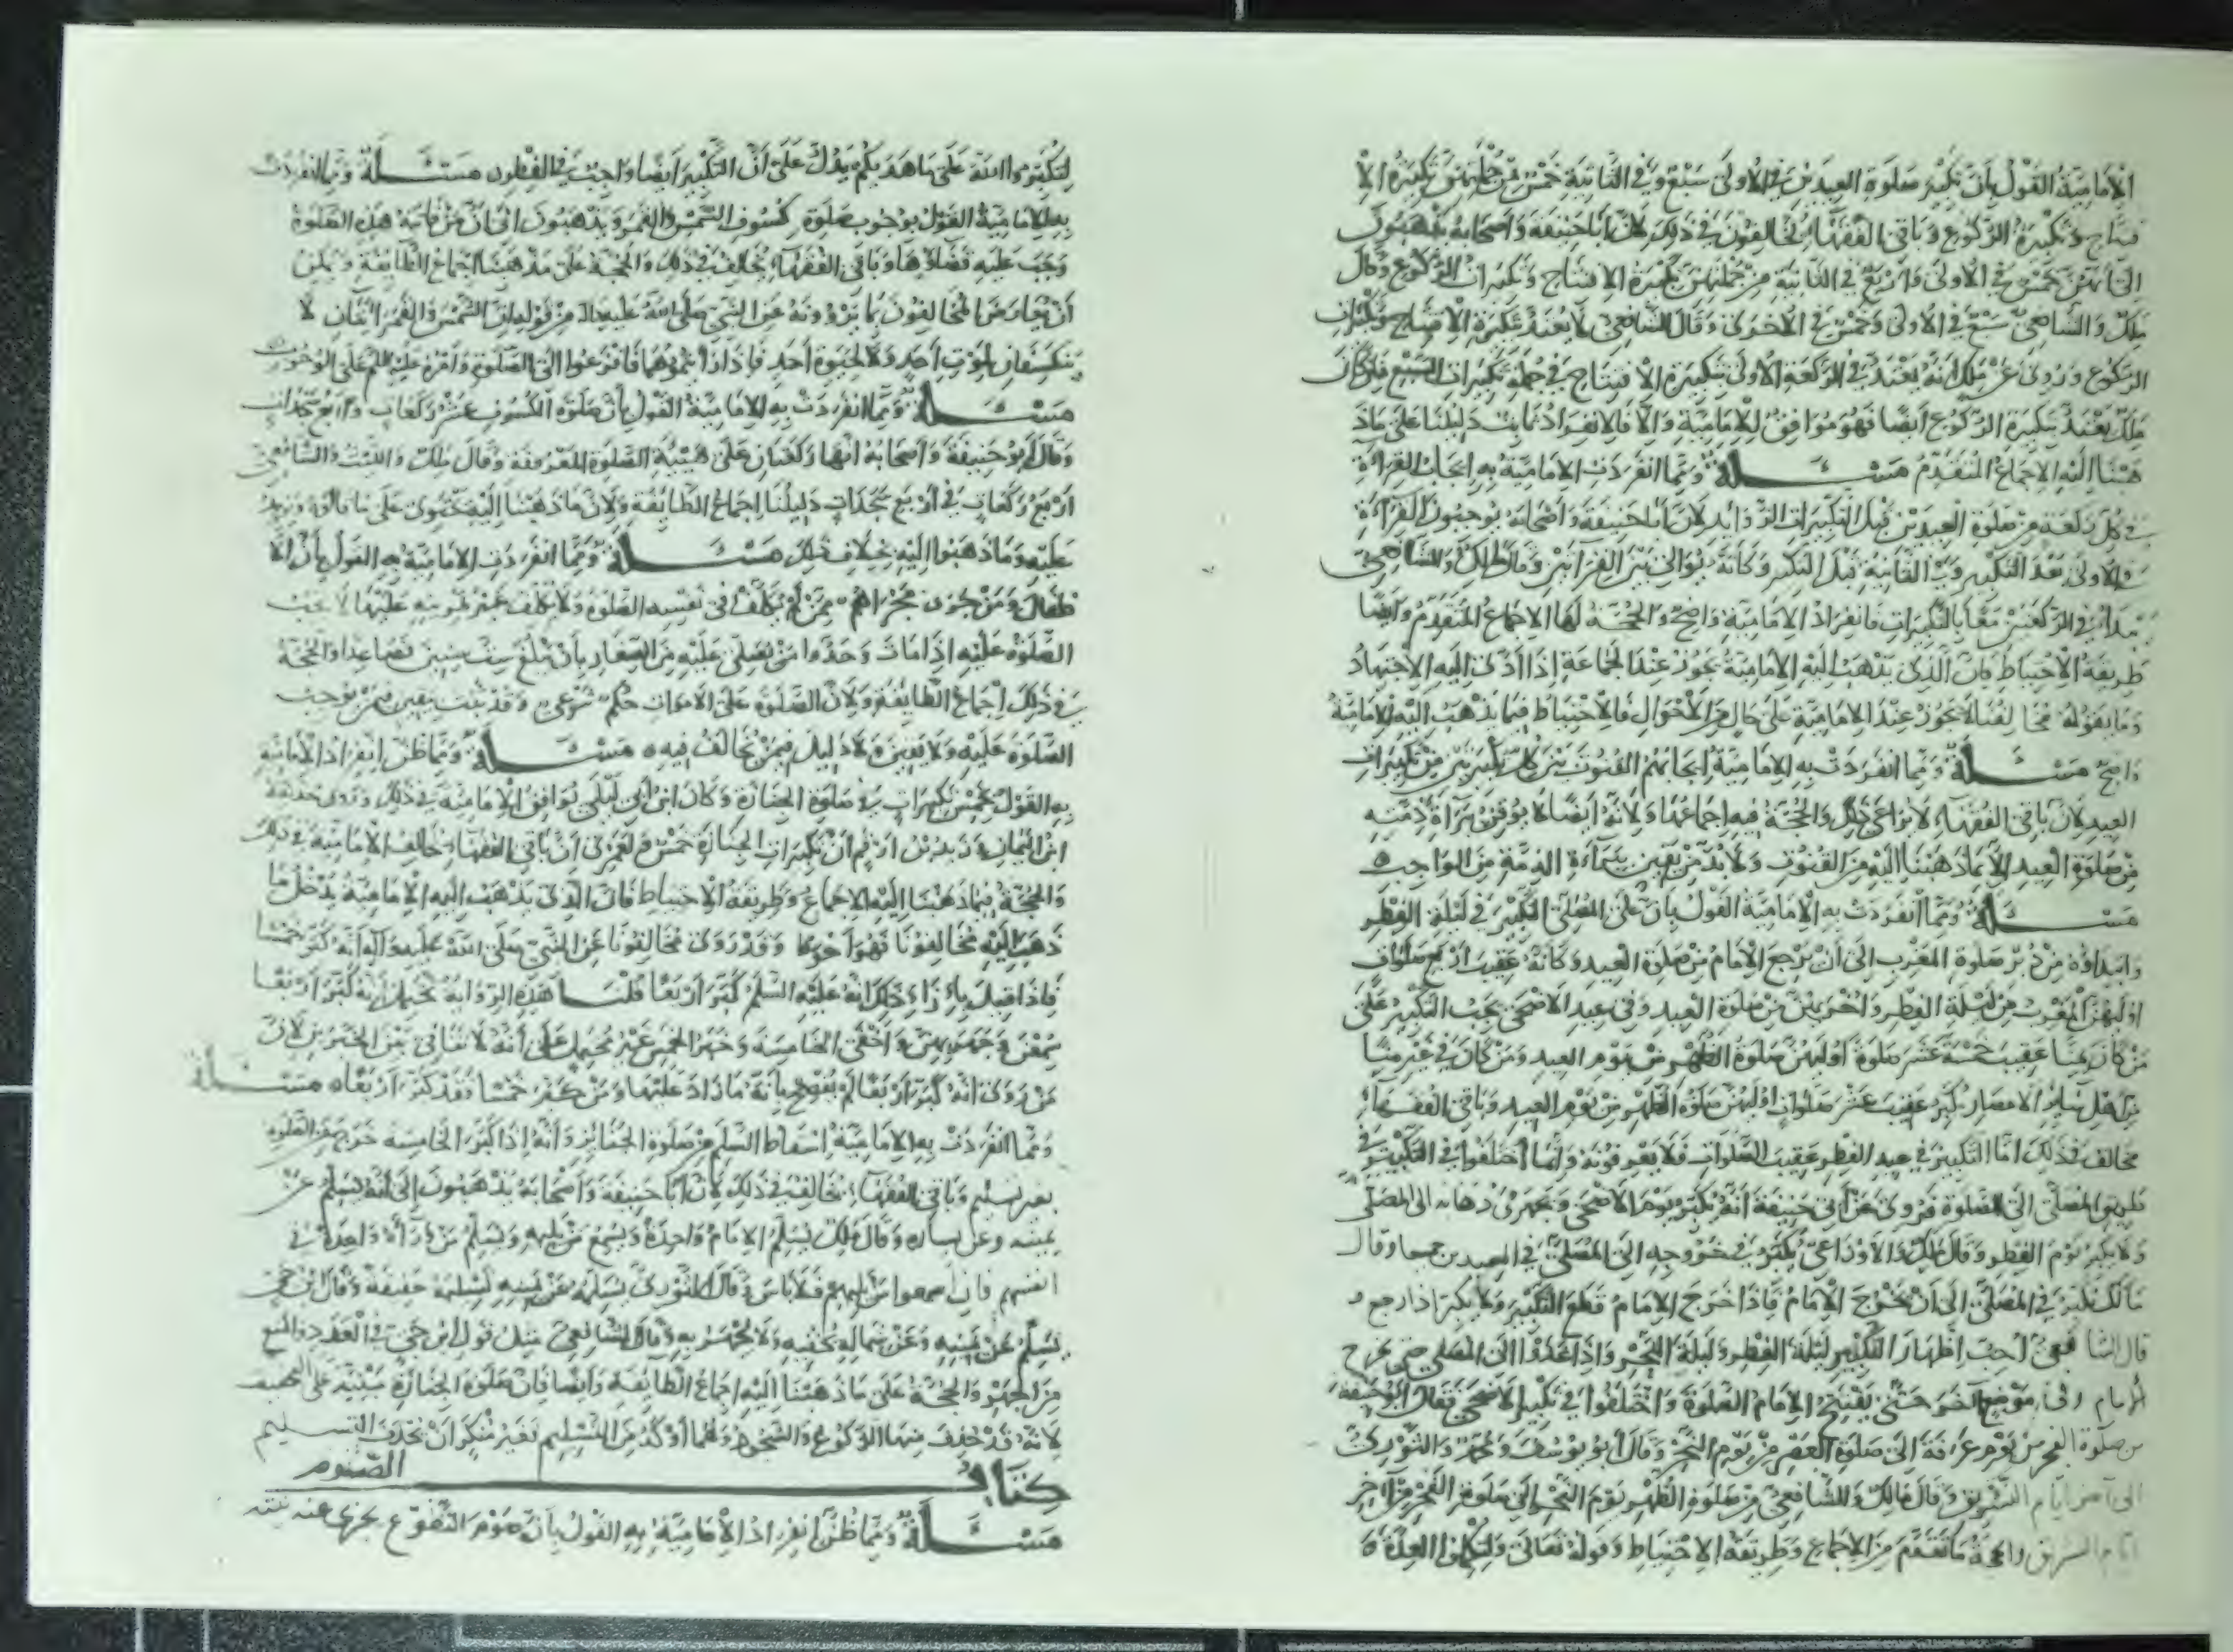 الإمامية القول بأن تكبير صلوة العيدين في الأولى سبع وفي الثانية خمس من جملتهن تكبيرة الا
فتتاح وتكبيرة الركوع وباقي الفقهاء يخالفون في ذلك لأن أبا حنيفة وأصحابه يذهبون
الى انهن خمس في الأولى وأربع في الثانية من جملتهن تكبيرة الافتتاح وتكبيرات الركوع وقال
ملك والشافعي سبع في الأولى وخمس في الأخرى وقال الشافعي لا يعتد بتكبيرة الافتتاح وتكبيرات
الركوع وروى عن ملك أنه يعتد في الركعة الأولى بتكبيرة الافتتاح في جملة تكبيرات السبع فإن كان
ملك يعتد بتكبيرة الركوع أيضا فهو موافق للإمامية والا فالانفراد ثابت دليلنا على ما ذ
هبنا إليه الإجماع المتقدم مسئلة ومما انفردت الإمامية به إيجاب القراءة
في كل ركعة من صلوة العيدين قبل التكبيرات الزوايد لأن أبا حنيفة وأصحابه يوجبون القراءة
في الأولى بعد التكبير وفي الثانية قبل التكبير وكأنه يوالي بين القراءتين وملك والشافعي
يبدأ في الركعتين معا بالتكبيرات فانفراد الإمامية واضح والحجة لها الإجماع المتقدم وأيضا
طريقة الاحتياط فان الذي يذهب إليه الإمامية يجوز عند الجماعة إذا أدى إليه الاجتهاد
وما يقوله مخالفنا لا يجوز عند الإمامية على حال من الأحوال فالاحتياط فيما يذهب إليه الإمامية
واضح مسئلة ومما انفردت به الإمامية إيجابهم القنوت بين كل تكبيرتين من تكبيرات
العيد لأن باقي الفقهاء لا يراعي ذلك والحجة فيه إجماعها ولأنه أيضا لا يوقن ببراءة ذمته
من صلوة العيد الا بما ذهبنا إليه من القنوت ولا بد من يقين ببراءة الذمة من الواجب
مسئلة ومما انفردت به الإمامية القول بأن على المصلي التكبير في ليلة الفطر
وابتداؤه من دبر صلوة المغرب الى أن يرجع الإمام من صلوة العيد وكأنه عقيب أربع صلوات
أولهن المغرب من ليلة الفطر وأخريهن من صلوة العيد وفي عيد الأضحى يجب التكبير على
من كان بمنا عقيب خمسة عشر صلوة أولهن صلوة الظهر من يوم العيد ومن كان في غير منا
من أهل ساير الأمصار يكبر عقيب عشر صلوات أولهن صلوة الظهر من يوم العيد وباقي الفقهاء
مخالف في ذلك أما التكبير في عيد الفطر عقيب الصلوات فلا يعرفونه وإنما اختلفوا في التكبير في
طريق المصلي الى الصلوة فروي عن أبي حنيفة أنه يكبر يوم الأضحى ويجهر في ذهابه الى المصلى
ولا يكبر يوم الفطر وقال ملك والأوزاعي يكبر في خروجه الى المصلى في العيدين جميعا وقال
مالك يكبر في المصلى الى أن يخرج الإمام فإذا خرج الإمام قطع التكبير ولا يكبر إذا رجع و
قال الشافعي أحب إظهار التكبير ليلة الفطر وليلة النحر وإذا غدوا الى المصلى حتى يخرج
الإمام وفي موضع آخر حتى يفتتح الإمام الصلوة واختلفوا في تكبير الأضحى فقال أبو حنيفة
من صلوة الفجر من يوم عرفة الى صلوة العصر من يوم النحر وقال أبو يوسف ومحمد والثوري
الى آخر أيام التشريق وقال مالك والشافعي من صلوة الظهر يوم النحر الى صلوة الفجر من آخر
أيام التشريق والحجة ما تقدم من الإجماع وطريقة الاحتياط وقوله تعالى ولتكملوا العدة
لتكبروا الله على ما هديكم يدل على أن التكبير أيضا واجب في الفطر مسئلة ومما انفردت
به الإمامية القول بوجوب صلوة كسوف الشمس والقمر ويذهبون الى أن من فاتته هذه الصلوة
وجب عليه قضاؤها وباقي الفقهاء يخالف في ذلك والحجة على مذهبنا إجماع الطايفة ويمكن
أن يعارض المخالفون بما يروونه عن النبي صلى الله عليه وآله من قوله إن الشمس والقمر آيتان لا
ينكسفان لموت أحد ولا لحيوة أحد فإذا رأيتموهما فافزعوا الى الصلوة وأمره عليه السلم على الوجوب
مسئلة ومما انفردت به الإمامية القول بأن صلوة الكسوف عشر ركعات وأربع سجدات
وقال أبو حنيفة وأصحابه انها ركعتان على هيئة الصلوة المعروفة وقال ملك والليث والشافعي
أربع ركعات في أربع سجدات دليلنا إجماع الطايفة ولأن ما ذهبنا إليه يحتوى على ما قالوه ويزيد
عليه وما ذهبوا إليه بخلاف ذلك مسئلة ومما انفردت الإمامية به القول بأن الأ
طفال ومن جرى مجراهم ممن لم يكلف في نفسه الصلوة ولا كلف غيره تمرينه عليها لا يجب
الصلوة عليه إذا مات وحدوا من يصلى عليه من الصغار بأن يبلغ ست سنين فصاعدا والحجة
في ذلك إجماع الطايفة ولأن الصلوة على الأموات حكم شرعي وقد ثبت بيقين فيمن يوجب
الصلوة عليه ولا يقين ولا دليل فيمن يخالف فيه مسئلة ومما ظن انفراد الإمامية
به القول بخمس تكبيرات في صلوة الجنازة وكان ابن أبي ليلى يوافق الإمامية في ذلك وروى حذيفة
ابن اليمان وزيد بن أرقم أن تكبيرات الجنازة خمس ولعمري أن باقي الفقهاء يخالف الإمامية في ذلك
والحجة فيما ذهبنا إليه الإجماع وطريقة الاحتياط فان الذي يذهب إليه الإمامية يدخل ما
ذهب إليه مخالفونا فهو أحوط وقد روى مخالفونا عن النبي صلى الله عليه وآله أنه كبر خمسا
فإذا قيل بإزاء ذلك أنه عليه السلم كبر أربعا قلنا هذه الرواية تحتمل أنه كبر أربعا
سمعن وجهر بهن وأخفى الخامسة وخبر الخمس غير محتمل على أنه لا تنافي بين الخبرين لأن
من روى أنه كبر أربعا لم يفصح بأنه ما زاد عليها ومن كبر خمسا فقد كبر أربعا مسئلة
ومما انفردت به الإمامية إسقاط السلم من صلوة الجنائز وأنه إذا كبر الخامسة خرج من الصلوة
بغير تسليم وباقي الفقهاء يخالف في ذلك لأن أبا حنيفة وأصحابه يذهبون إلى أنه يسلم عن
يمينه وعن يساره وقال ملك يسلم الإمام واحدة ويسمع من يليه ويسلم من وراءه واحدة في
أنفسهم فإن أسمعوا من يليهم فلا بأس وقال الثوري يسلم عن يمينه تسليمة خفيفة وقال ابن حي
يسلم عن يمينه وعن شماله يخفيه ولا يجهر به وقال الشافعي مثل قول ابن حي في العقد والمنع
من الجهر والحجة على ما ذهبنا إليه إجماع الطايفة وأيضا فان صلوة الجنازة مبنية على التخفيف
لأنه قد حذف منها الركوع والسجود وهما أوكد من التسليم فغير منكر أن يحذف التسليم
كتاب الصوم
مسئلة ومما ظن انفراد الإمامية به القول بأن صوم التطوع يجزى عنه نيته